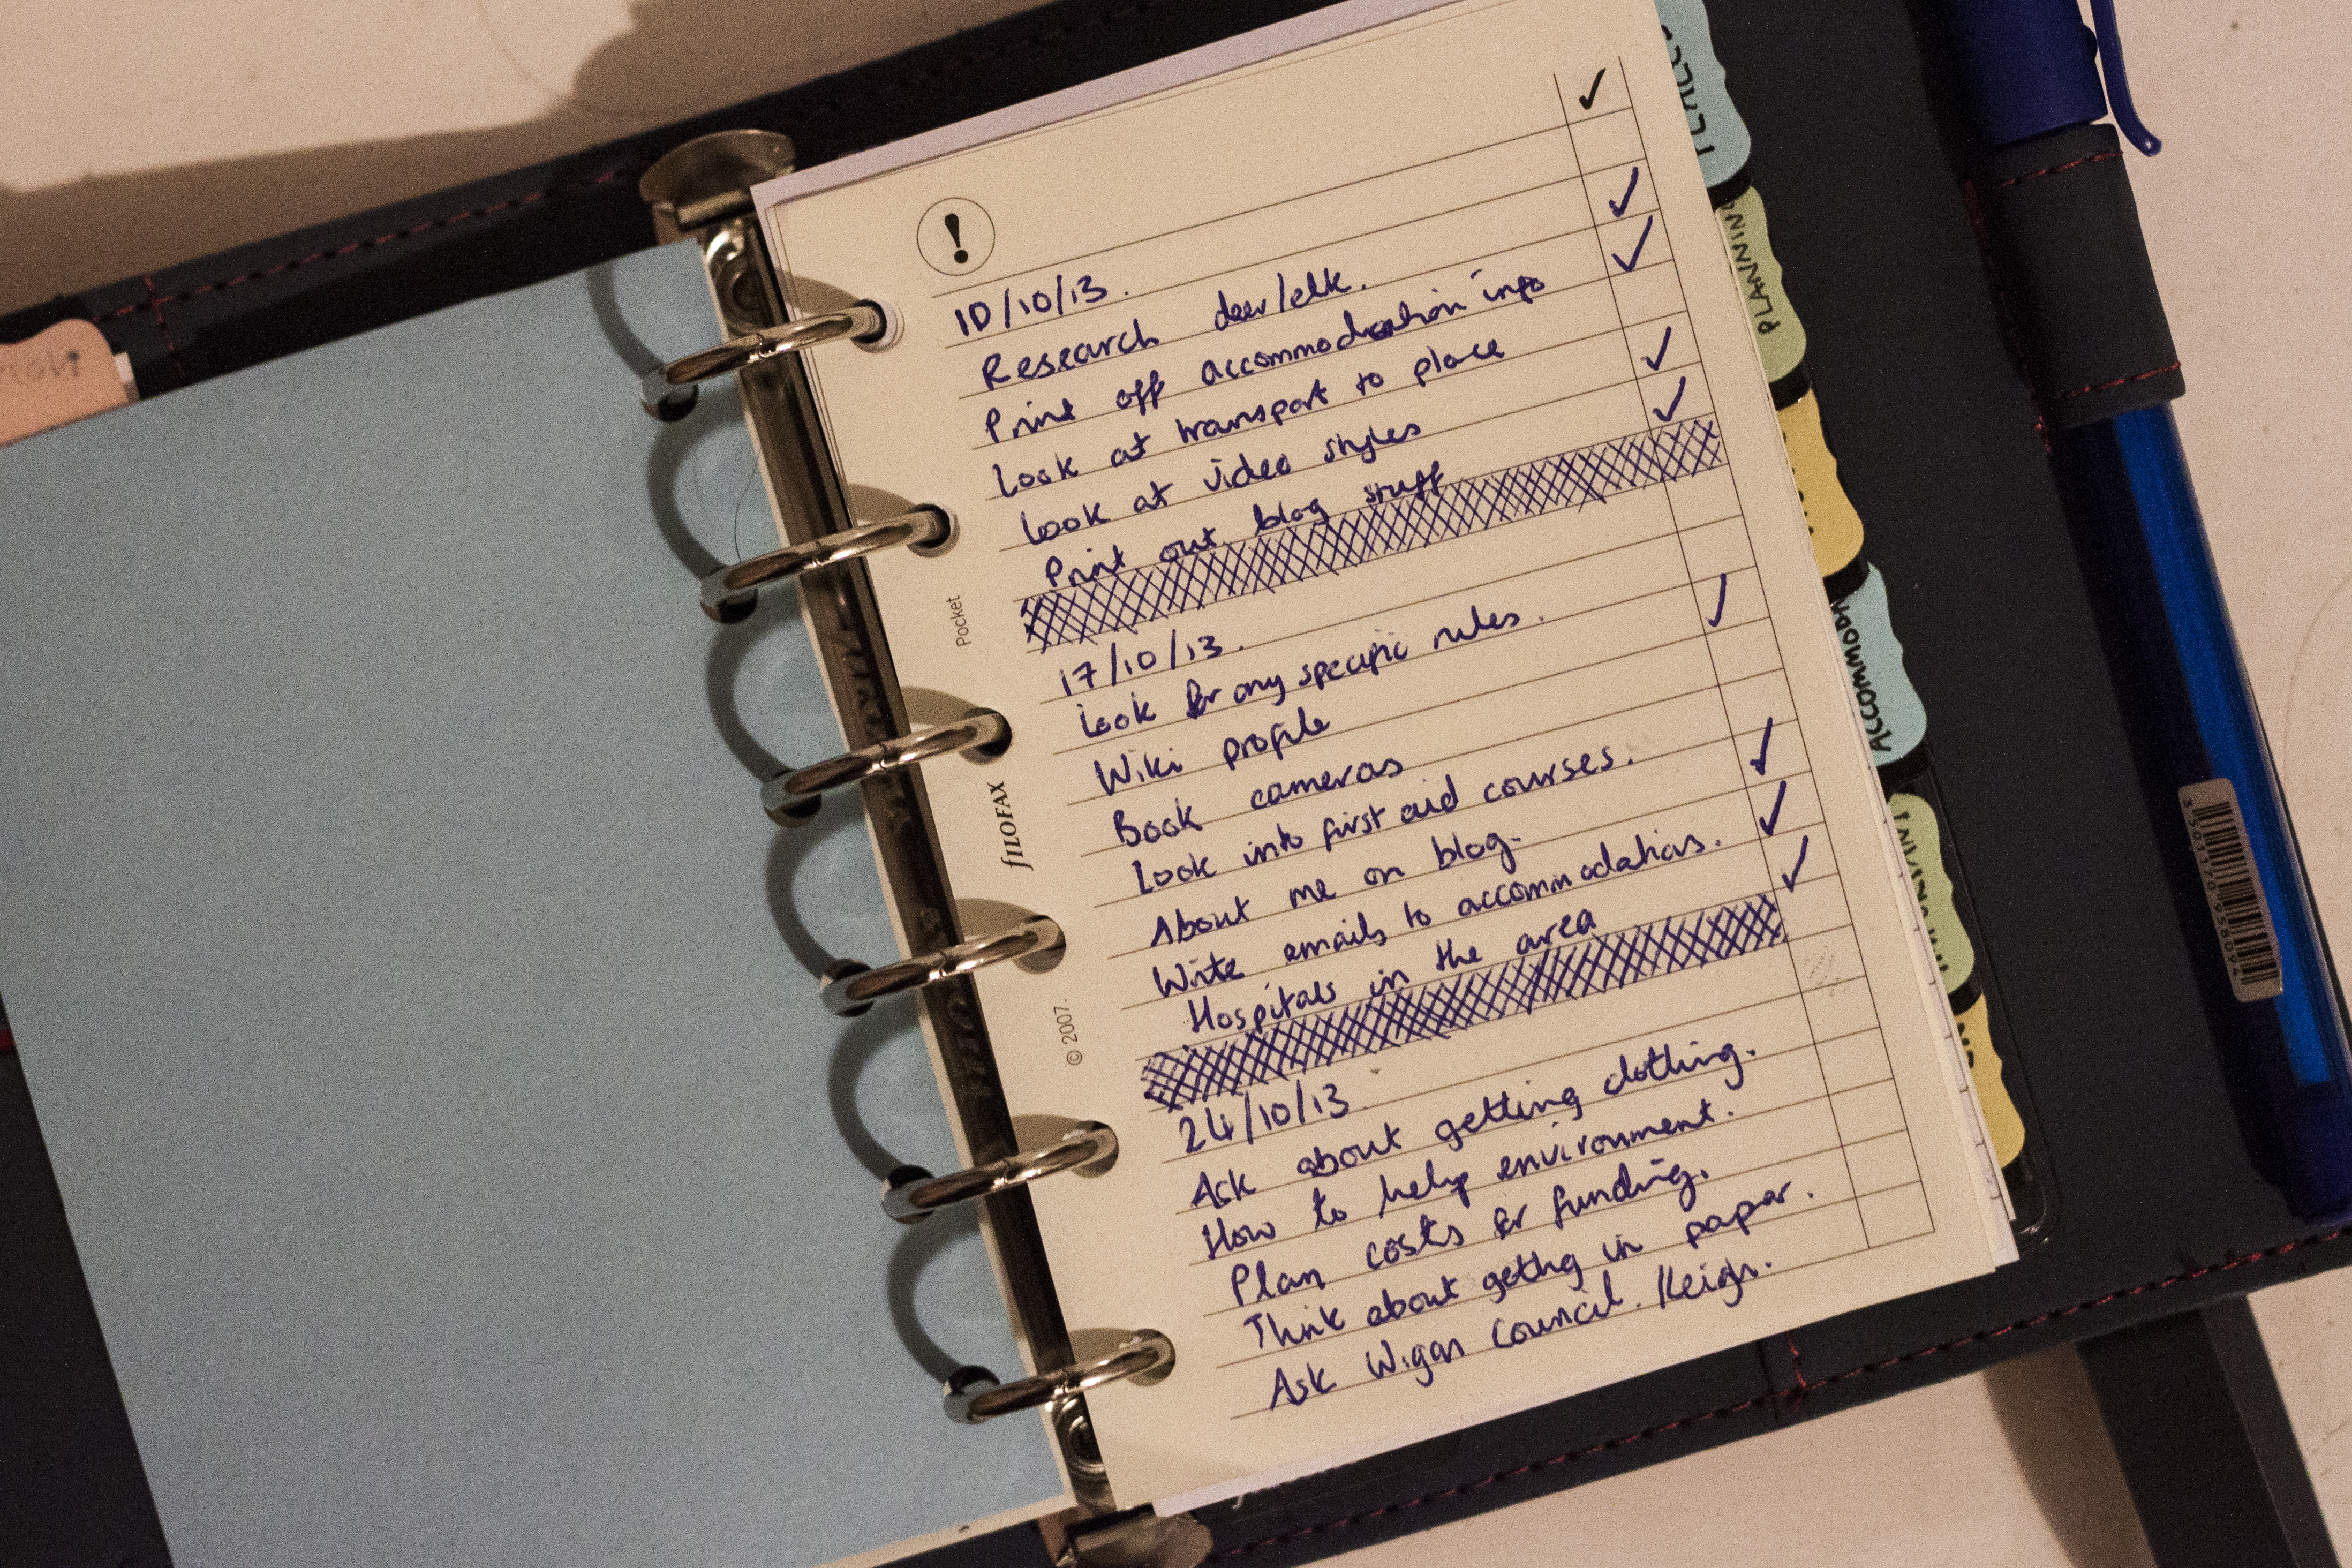 !
✓
10/10/13.
Research deer/elk. ✓
Print off accommodation info ✓
Look at transport to place
Look at video styles ✓
Print out blog stuff ✓
17/10/13.
Look for any specific rules.
Wiki profile ✓
Book cameras
Look into first aid courses.
About me on blog. ✓
Write emails to accommodations. ✓
Hospitals in the area ✓
24/10/13.
Ask about getting clothing.
How to help environment.
Plan costs for funding.
Think about gething in papar.
Ask Wigan Council. /Leigh.
Pocket
fILOFAX
© 2007.
PLACES
PLANNING
ACCOMMODA